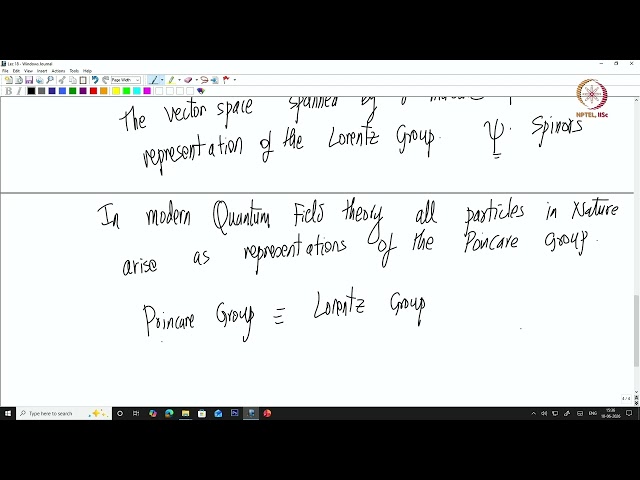 Lec 18 - Windows Journal
File Edit View Insert Actions Tools Help
Page Width
NPTEL, IISc
the vector space spanned by
representation of the Lorentz Group. Ψ. Spinors
In modern Quantum Field theory all particles in Nature
arise as representations of the Poincare Group.
Poincare Group ≡ Lorentz Group
4 / 4
Type here to search
ENG
15:36
18-06-2026